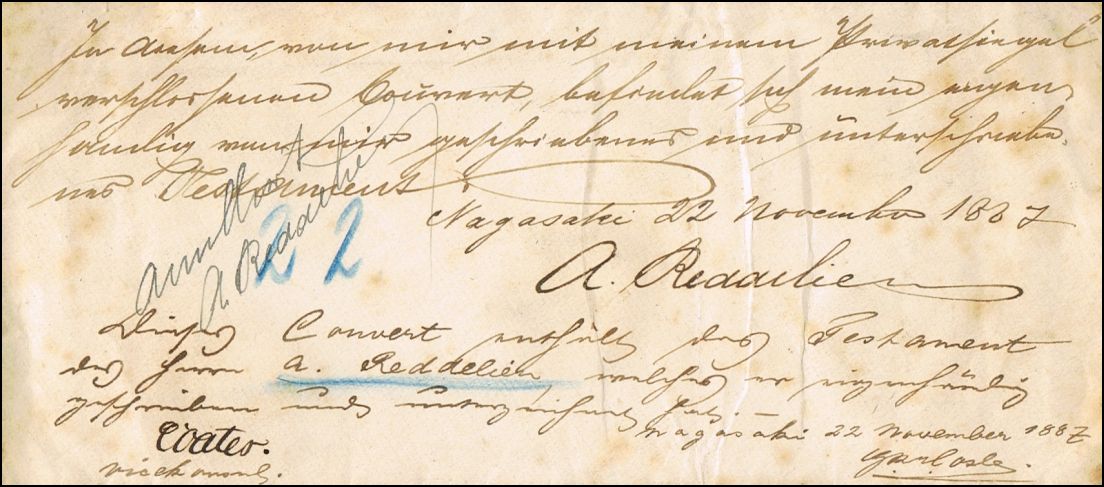 In diesem, von mir mit meinem Privatsiegel
verschlossenen Couvert, befindet sich mein eigen
händig von mir geschriebenes und unterschriebe-
nes Testament.
Nagasaki 22 November 1887
A. Reddelien
A. Reddelien
22
Dieses Couvert enthält das Testament
des Herrn A. Reddelien, welches er eigenhändig
geschrieben und unterzeichnet hat. –
Nagasaki 22 November 1887
Coates.
Vicekonsul.